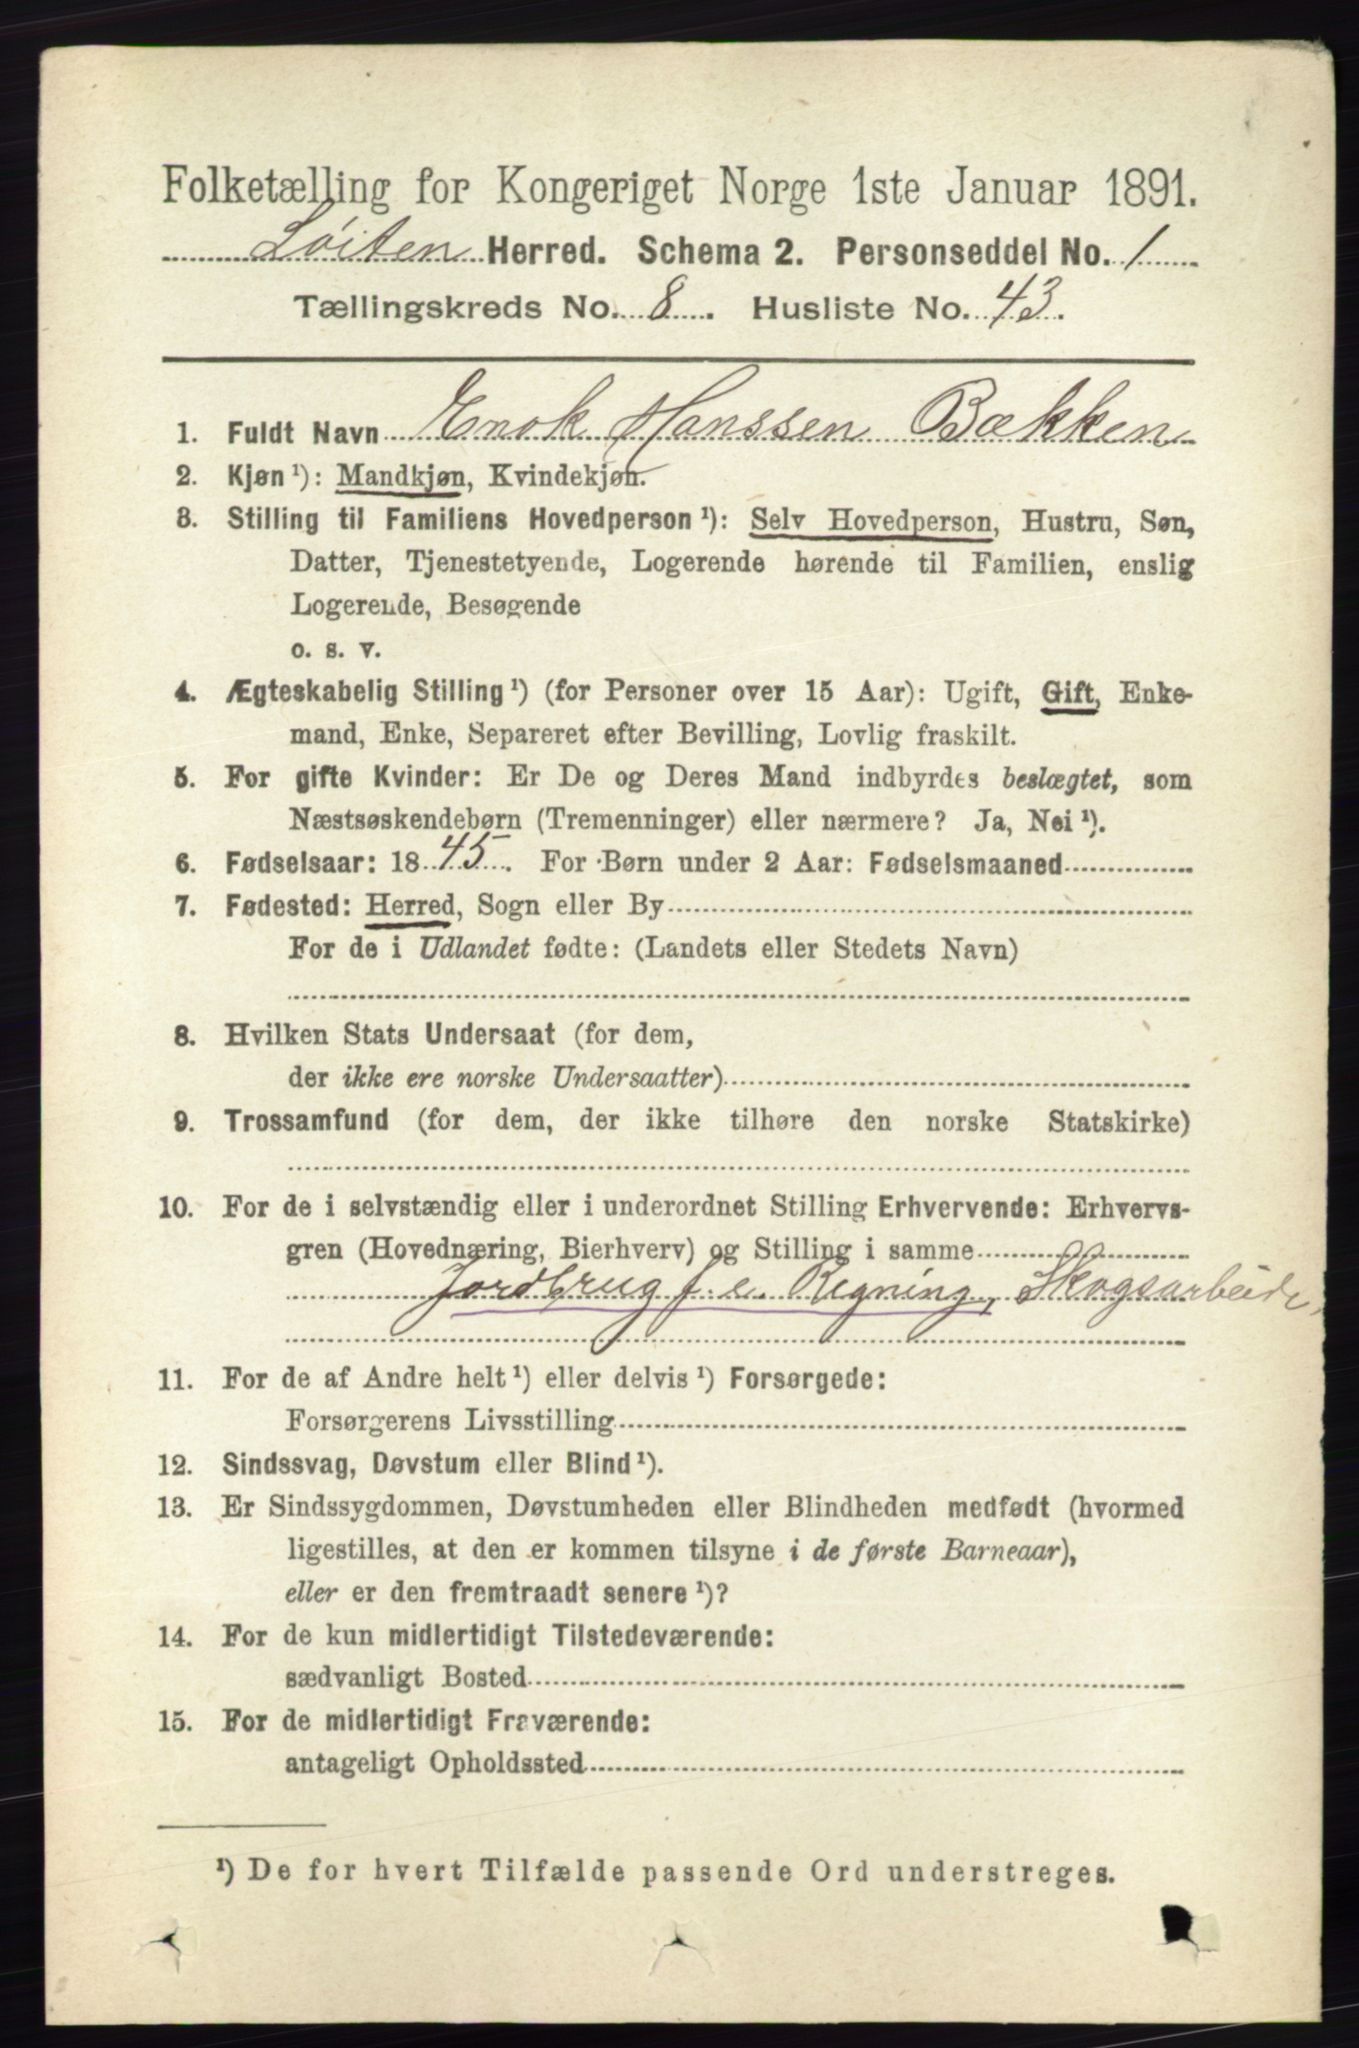 Folketælling for Kongeriget Norge 1ste Januar 1891.
Løiten Herred. Schema 2. Personseddel No. 1
Tællingskreds No. 8. Husliste No. 43.
1. Fuldt Navn Enok Hanssen Bækken
2. Kjøn¹): Mandkjøn, Kvindekjøn.
3. Stilling til Familiens Hovedperson¹): Selv Hovedperson, Hustru, Søn,
Datter, Tjenestetyende, Logerende hørende til Familien, enslig
Logerende, Besøgende
o. s. v.
4. Ægteskabelig Stilling¹) (for Personer over 15 Aar): Ugift, Gift, Enke-
mand, Enke, Separeret efter Bevilling, Lovlig fraskilt.
5. For gifte Kvinder: Er De og Deres Mand indbyrdes beslægtet, som
Næstsøskendebørn (Tremenninger) eller nærmere? Ja, Nei¹).
6. Fødselsaar: 1845. For Børn under 2 Aar: Fødselsmaaned
7. Fødested: Herred, Sogn eller By
For de i Udlandet fødte: (Landets eller Stedets Navn)
8. Hvilken Stats Undersaat (for dem,
der ikke ere norske Undersaatter)
9. Trossamfund (for dem, der ikke tilhøre den norske Statskirke)
10. For de i selvstændig eller i underordnet Stilling Erhvervende: Erhvervs-
gren (Hovednæring, Bierhverv) og Stilling i samme
Jordbrug f. e. Regning, Skogsarbeide,
11. For de af Andre helt¹) eller delvis¹) Forsørgede:
Forsørgerens Livsstilling
12. Sindssvag, Døvstum eller Blind¹).
13. Er Sindssygdommen, Døvstumheden eller Blindheden medfødt (hvormed
ligestilles, at den er kommen tilsyne i de første Barneaar),
eller er den fremtraadt senere¹)?
14. For de kun midlertidigt Tilstedeværende:
sædvanligt Bosted
15. For de midlertidigt Fraværende:
antageligt Opholdssted
¹) De for hvert Tilfælde passende Ord understreges.